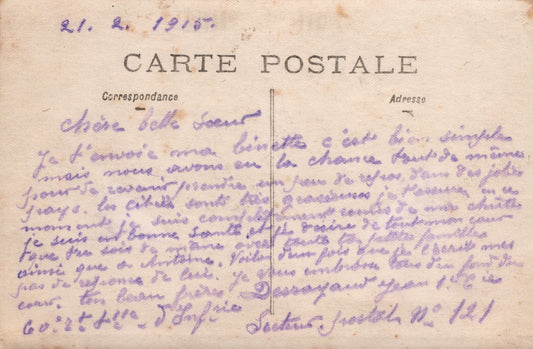 21. 2. 1915.
CARTE POSTALE
Correspondance
Adresse
Chère belle Sœur
Je t'envoie ma binette c'est bien simple
mais nous avons eu la chance tout de même
pour de revenir prendre un peu de repos dans des jolis
pays. les civils sont très gracieux je t'assure en ce
moment je suis complètement remis de ma
je suis en bonne santé et je désire de tout mon cœur
que tu sois de même avec toute ta petite famille
ainsi que a Antoine. Voilà d'un fois que je t'écris mes
pas de réponse de lui. je vous embrasse tous du fond du
cœur. ton beau frère Jean 1° Cie
60° Rt d'Infrie
Secteur postal N° 121